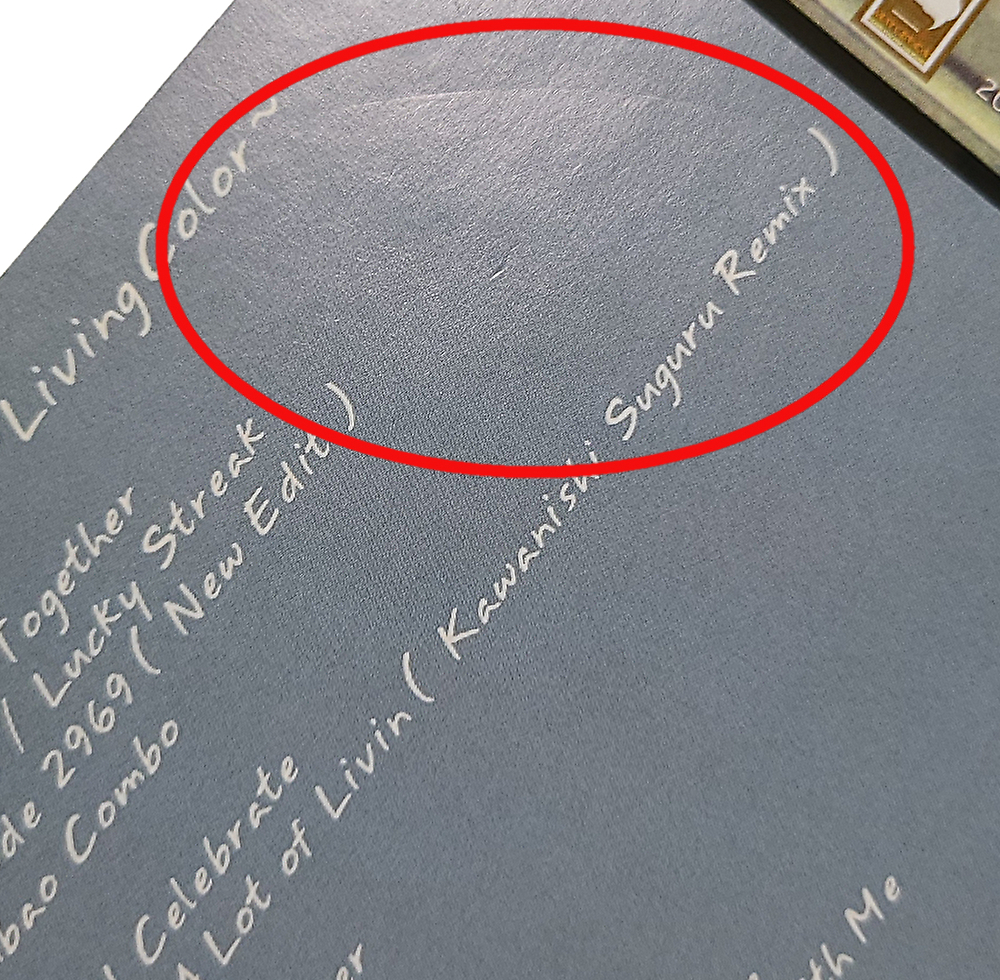 Living Color~
Together
/ Lucky Streak
de 2969 ( New Edit )
bao Combo
Celebrate
A Lot of Livin ( Kawanishi Suguru Remix )
er
th Me
20